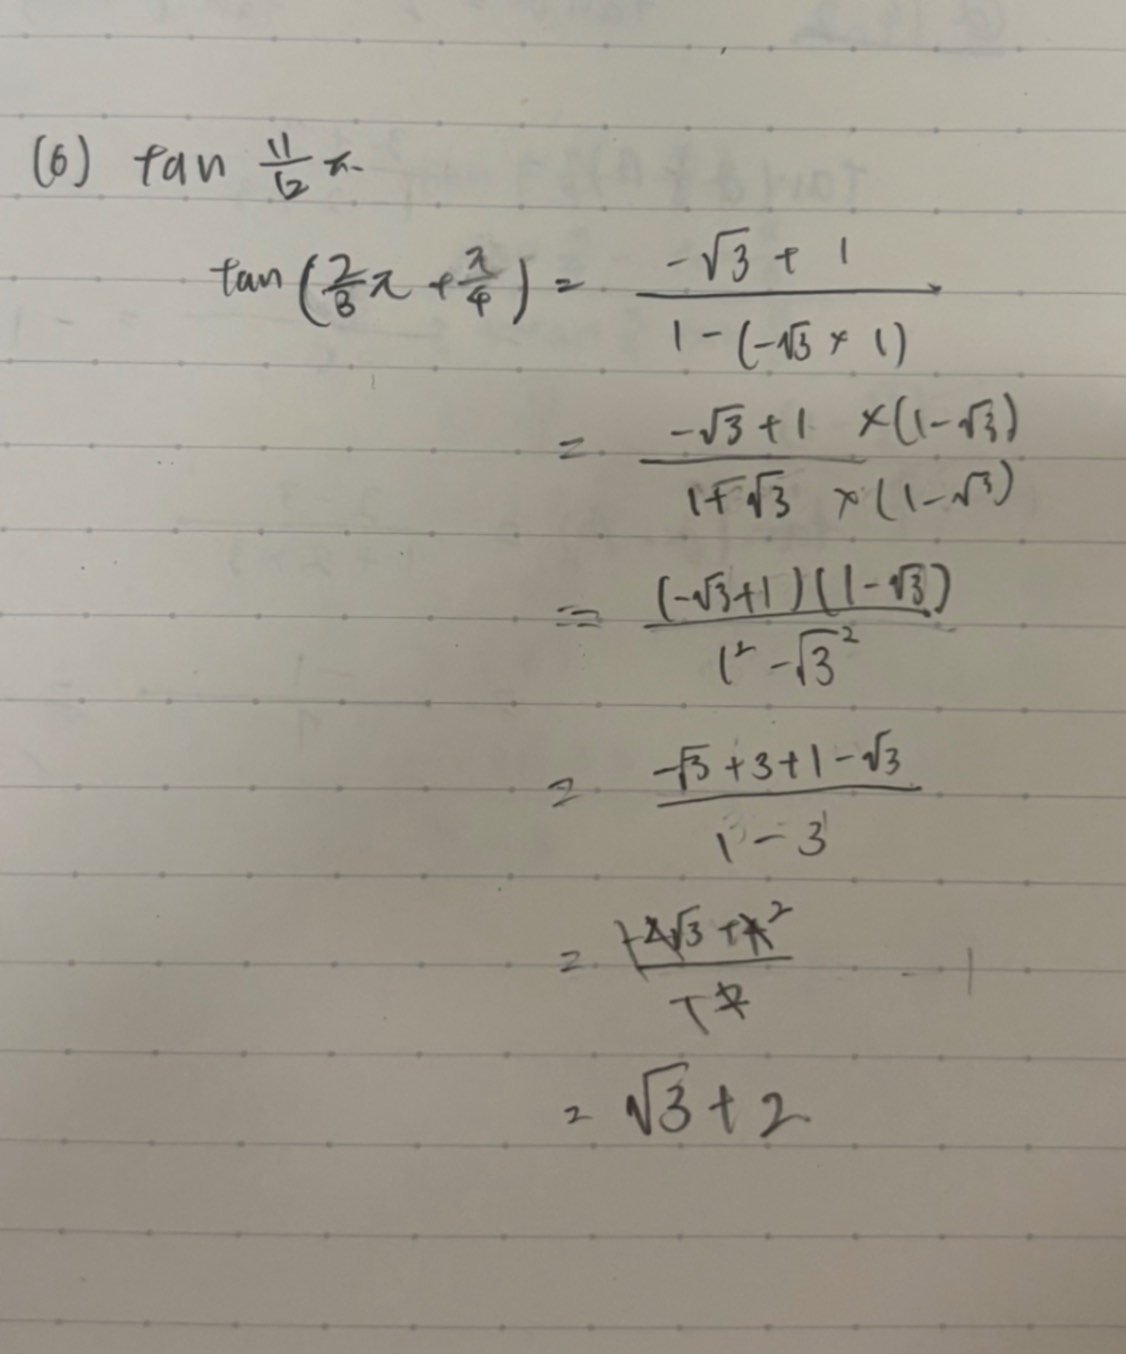 (6) tan 11/12 π
tan (2/3 π + π/4) = (-√3 + 1)/(1 - (-√3 × 1))
= (-√3 + 1 × (1 - √3))/(1 + √3 × (1 - √3))
= ((-√3 + 1)(1 - √3))/(1² - √3²)
= (-√3 + 3 + 1 - √3)/(1 - 3)
= (-2√3 + 4 2)/(-2)
= √3 + 2